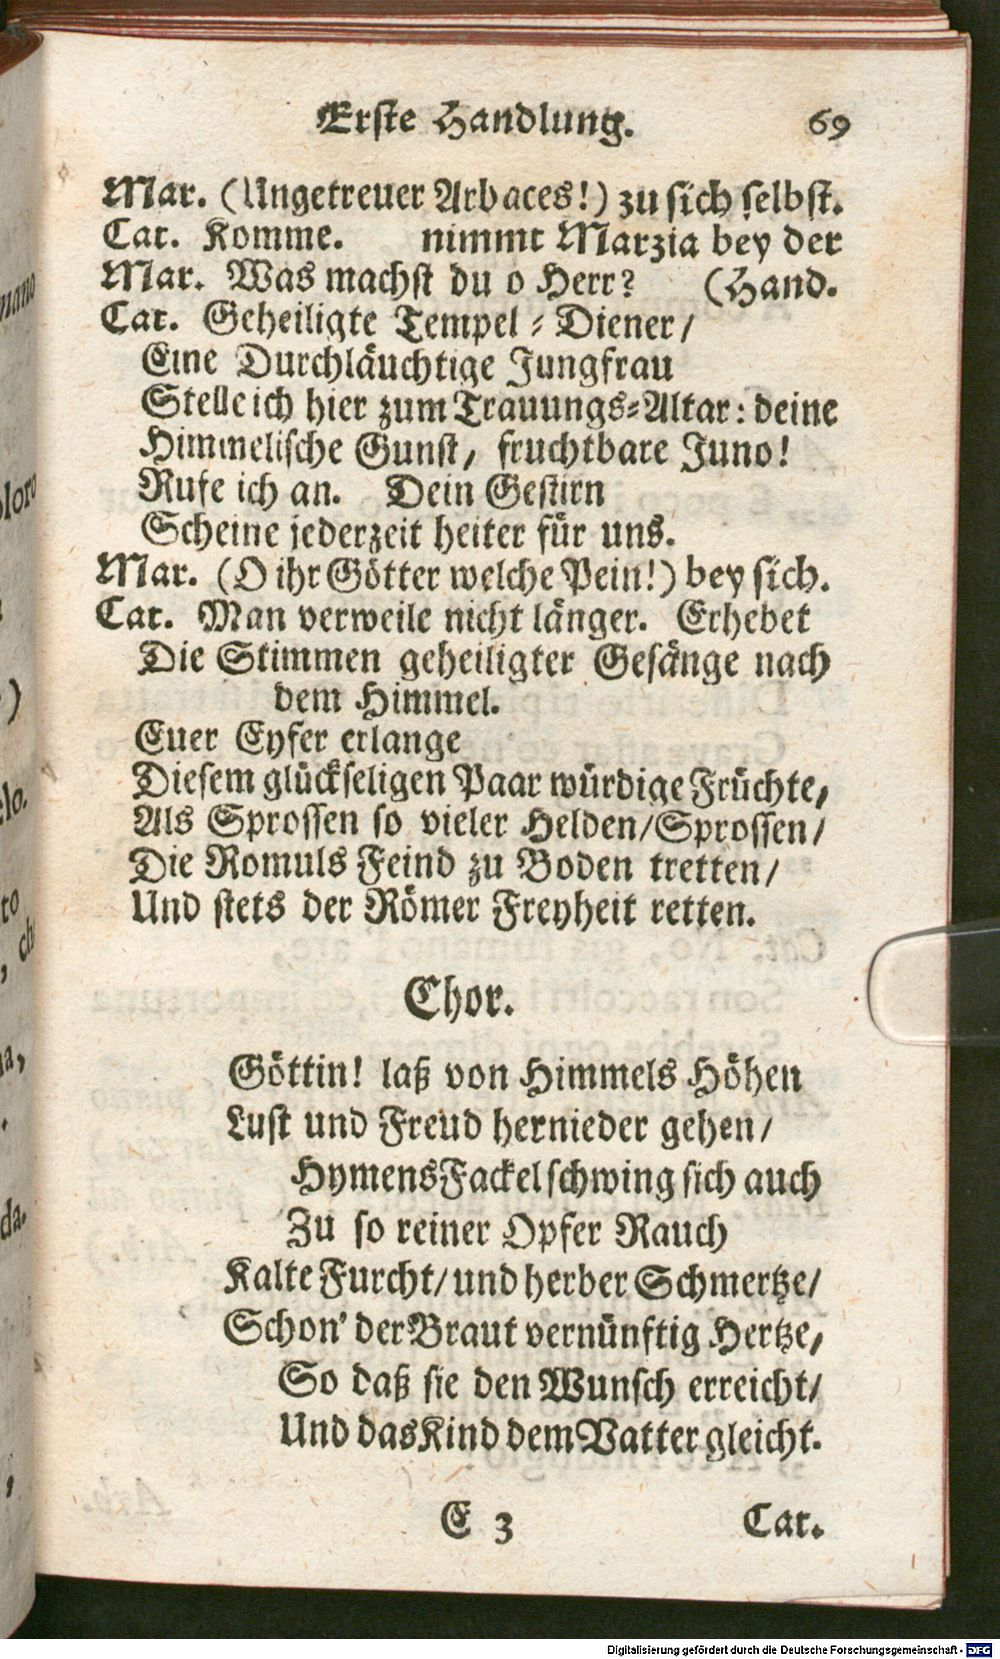 Erste Handlung. 69
Mar. (Ungetreuer Arbaces!) zu sich selbst.
Cat. Komme. nimmt Marzia bey der
Mar. Was machst du o Herr? (Hand.
Cat. Geheiligte Tempel-Diener/
Eine Durchläuchtige Jungfrau
Stelle ich hier zum Trauungs-Altar: deine
Himmelische Gunst/ fruchtbare Juno!
Rufe ich an. Dein Gestirn
Scheine jederzeit heiter für uns.
Mar. (O ihr Götter welche Pein!) bey sich.
Cat. Man verweile nicht länger. Erhebet
Die Stimmen geheiligter Gesänge nach
dem Himmel.
Euer Eyfer erlange
Diesem glückseligen Paar würdige Früchte,
Als Sprossen so vieler Helden/Sprossen/
Die Romuls Feind zu Boden tretten/
Und stets der Römer Freyheit retten.
Chor.
Göttin! laß von Himmels Höhen
Lust und Freud hernieder gehen/
Hymens Fackel schwing sich auch
Zu so reiner Opfer Rauch
Kalte Furcht/ und herber Schmertze/
Schon' der Braut vernünftig Hertze,
So daß sie den Wunsch erreicht/
Und das Kind dem Vatter gleicht.
E 3 Cat.
mano
loro
)
elo.
to
, ch
na,
da.
Digitalisierung gefördert durch die Deutsche Forschungsgemeinschaft - DFG